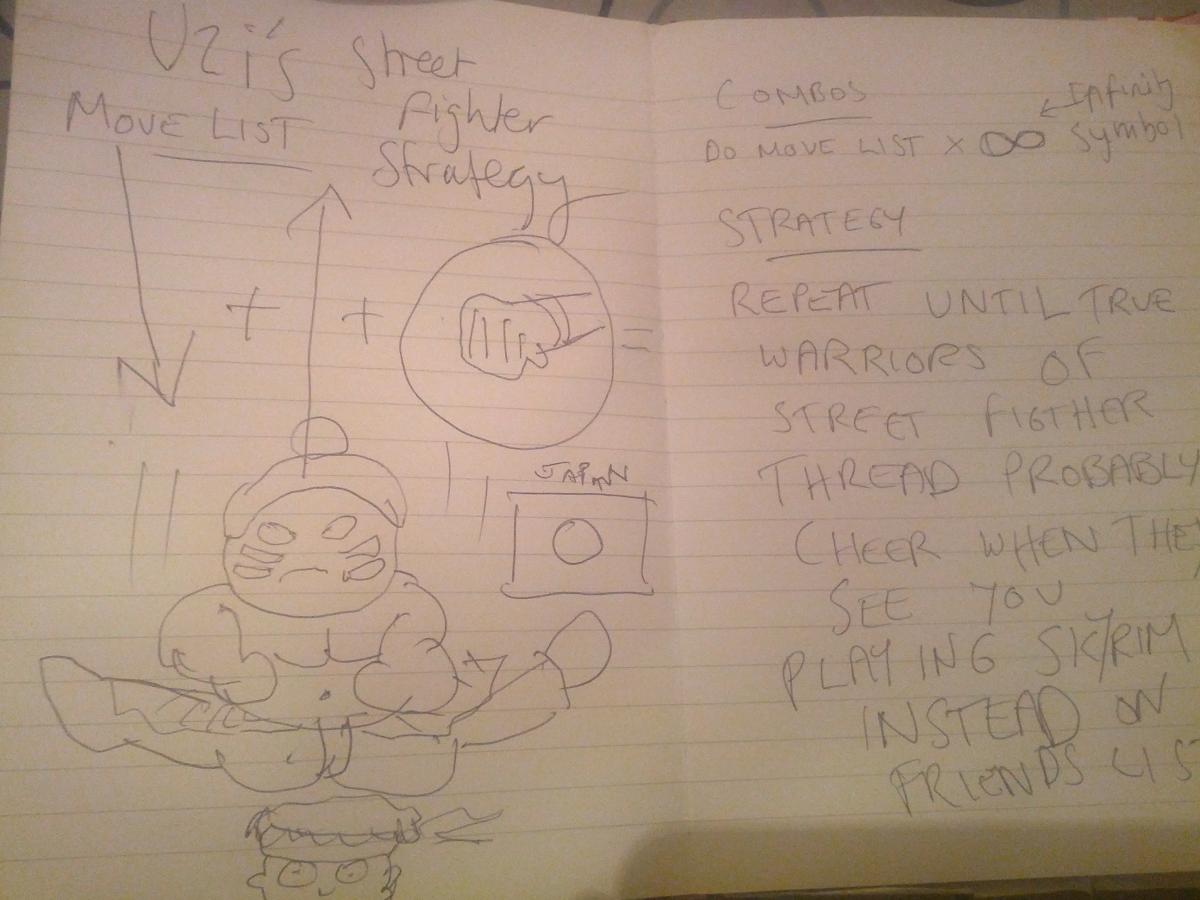 Uzi's Street
Fighter
Strategy
MOVE LIST
+ + =
JAPAN
COMBOS
DO MOVE LIST × ∞ ← Infinity
Symbol
STRATEGY
REPEAT UNTIL TRUE
WARRIORS OF
STREET FIGTHER
THREAD PROBABLY
CHEER WHEN THEY
SEE YOU
PLAYING SKYRIM
INSTEAD ON
FRIENDS LIST